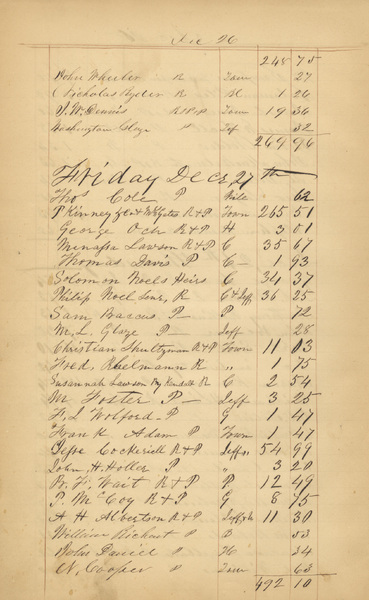 Dec 26
245 75
John Wheeler R Town 27
Nicholas Ryder R M 1 26
J. W. Dennis R & P Town 19 36
Washington Glaze P Jef 32
269 96
Friday Dec 27th
Thos Cole P Mile 62
P Kinney R & P Town 265 51
George Ock R & P H 3 01
Menassa Lawson R & P C 35 67
Thomas Davis P C 1 93
Solomon Noels Heirs C 34 37
Philip Noel Senr, R C & Jeff 36 25
Sam Barcus P P 72
Wm. L. Glaze P Jeff 28
Christian Shultzman R & P Town 11 03
Fred. Khelmann R " 1 75
Susannah Lawson By Kendall R C 2 54
Wm Foster P Jeff 3 25
F. L Wolford P G 1 47
Frank Adam P Town 1 47
Jesse Cockeriell R & P Jeff 54 99
John, H. Holler P " 3 20
B. F. Wait R & P P 12 49
P. McCoy R & P G 8 75
A H Albertson R & P Jeff 11 30
William Richart P 53
Daniel P H 34
N. Cooper P Town 63
492 10